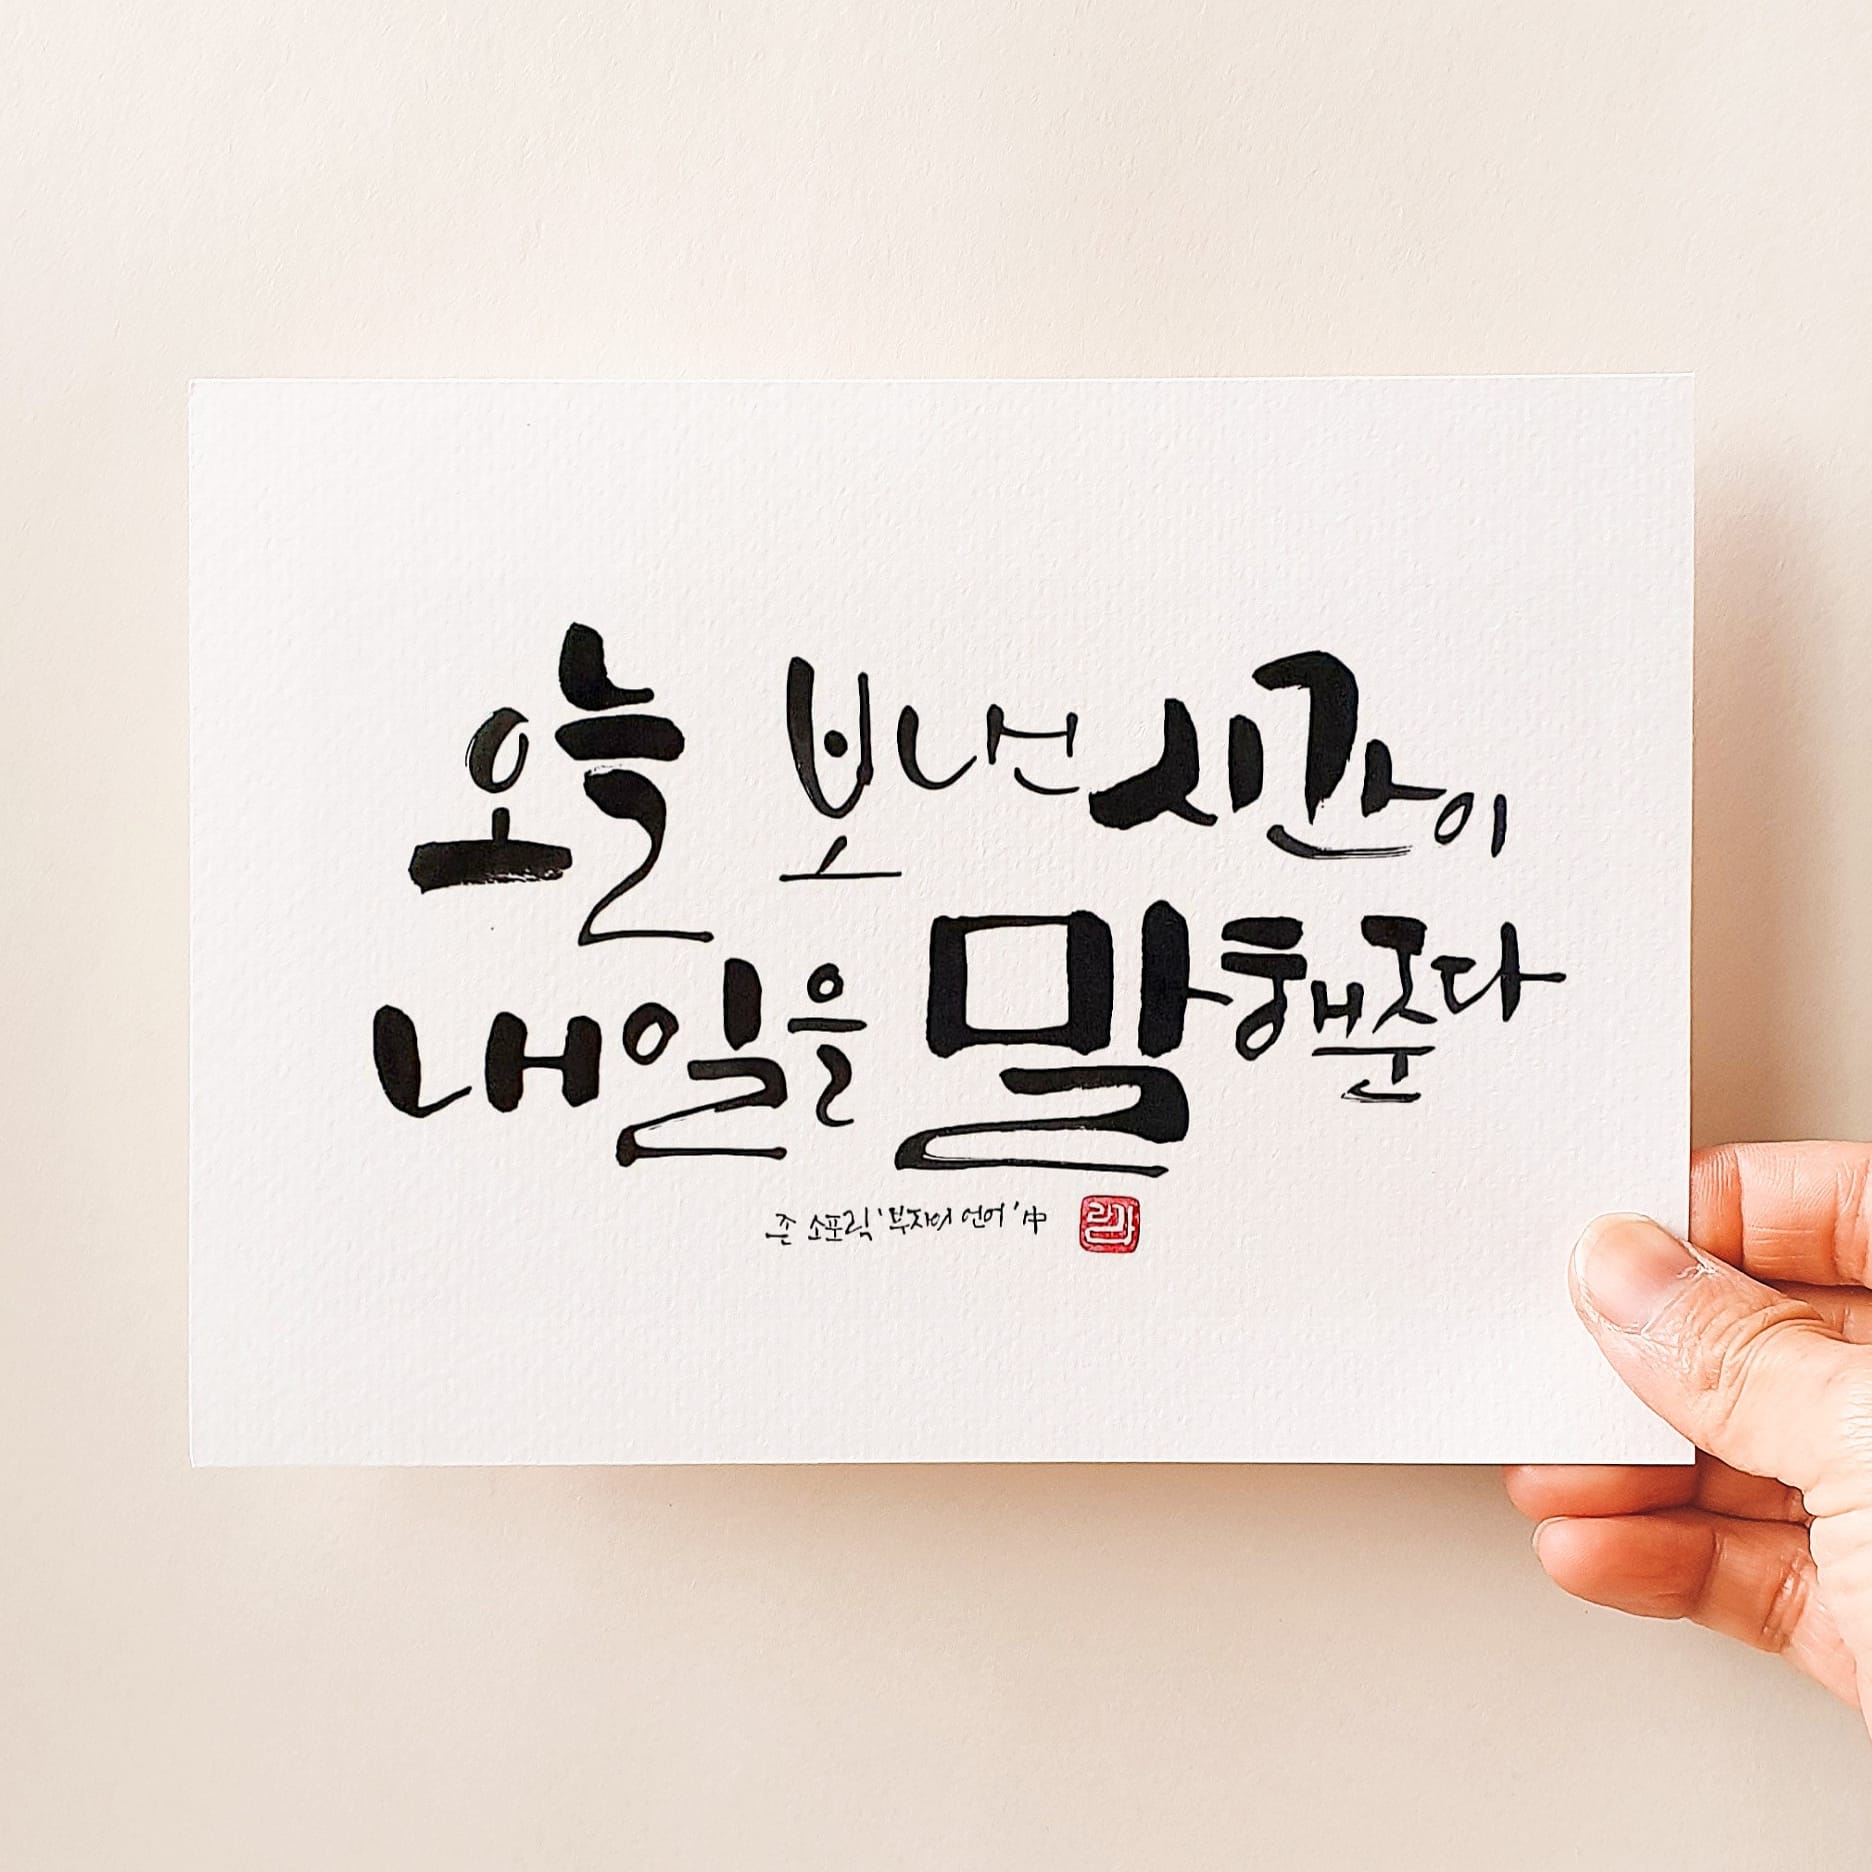 오늘 보낸 시간이
내일을 말해준다
존 소포릭 '부자의 언어' 中